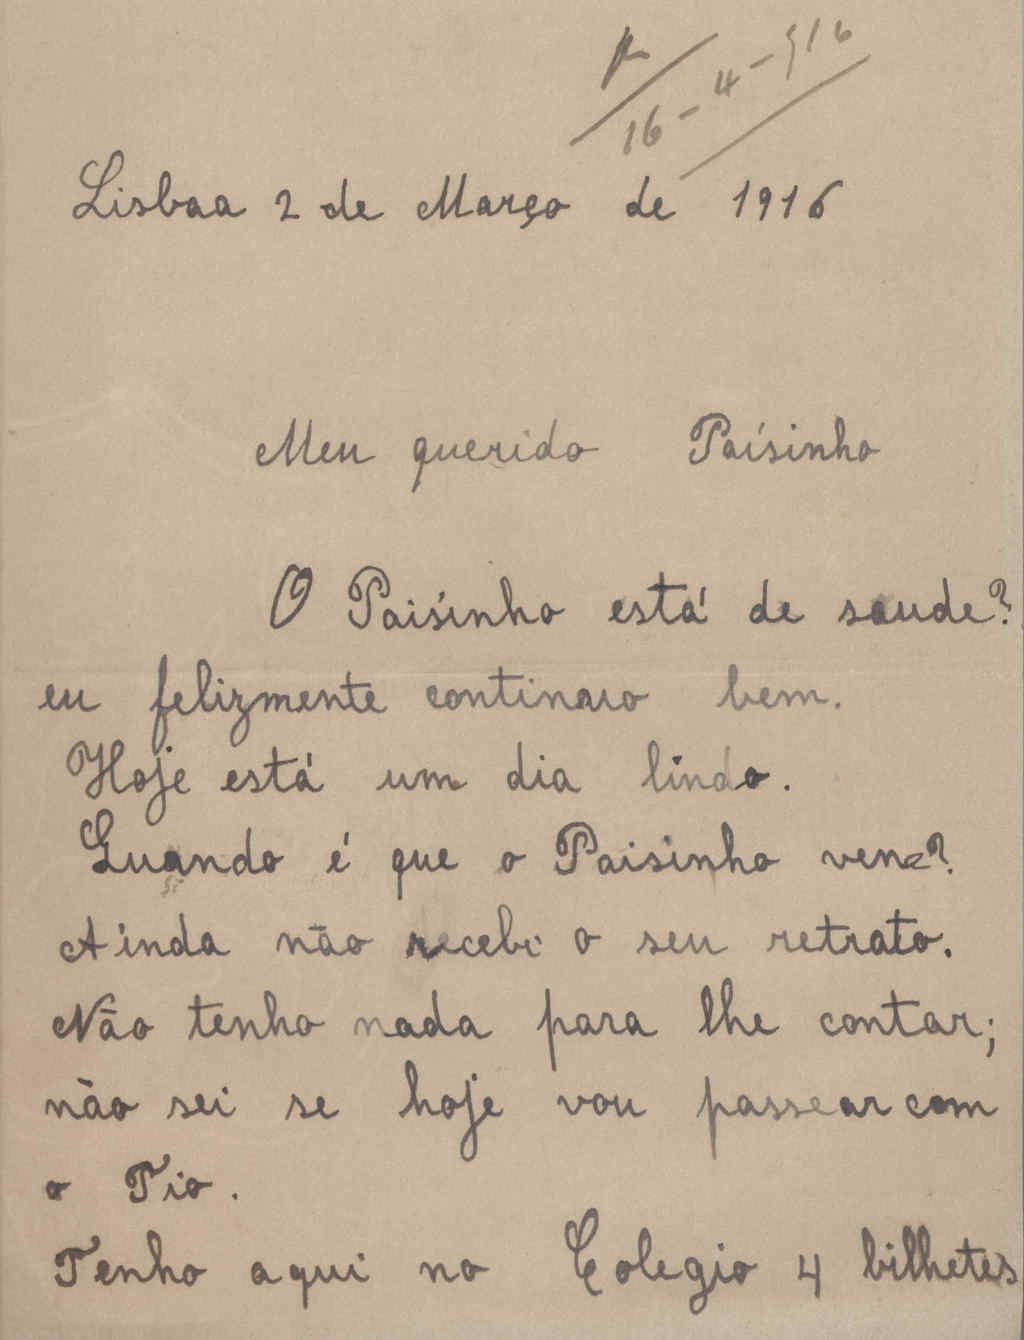 R
16-4-916
Lisbaa 2 de Março de 1916
Meu querido Paísinho
O Paisinho está de saude?
eu felizmente continuo bem.
Hoje está um dia lindo.
Quando é que o Paisinho vem?
Ainda não recebi o seu retrato.
Não tenho nada para lhe contar;
não sei se hoje vou passear com
o Tio.
Tenho aqui no Colegio 4 bilhetes